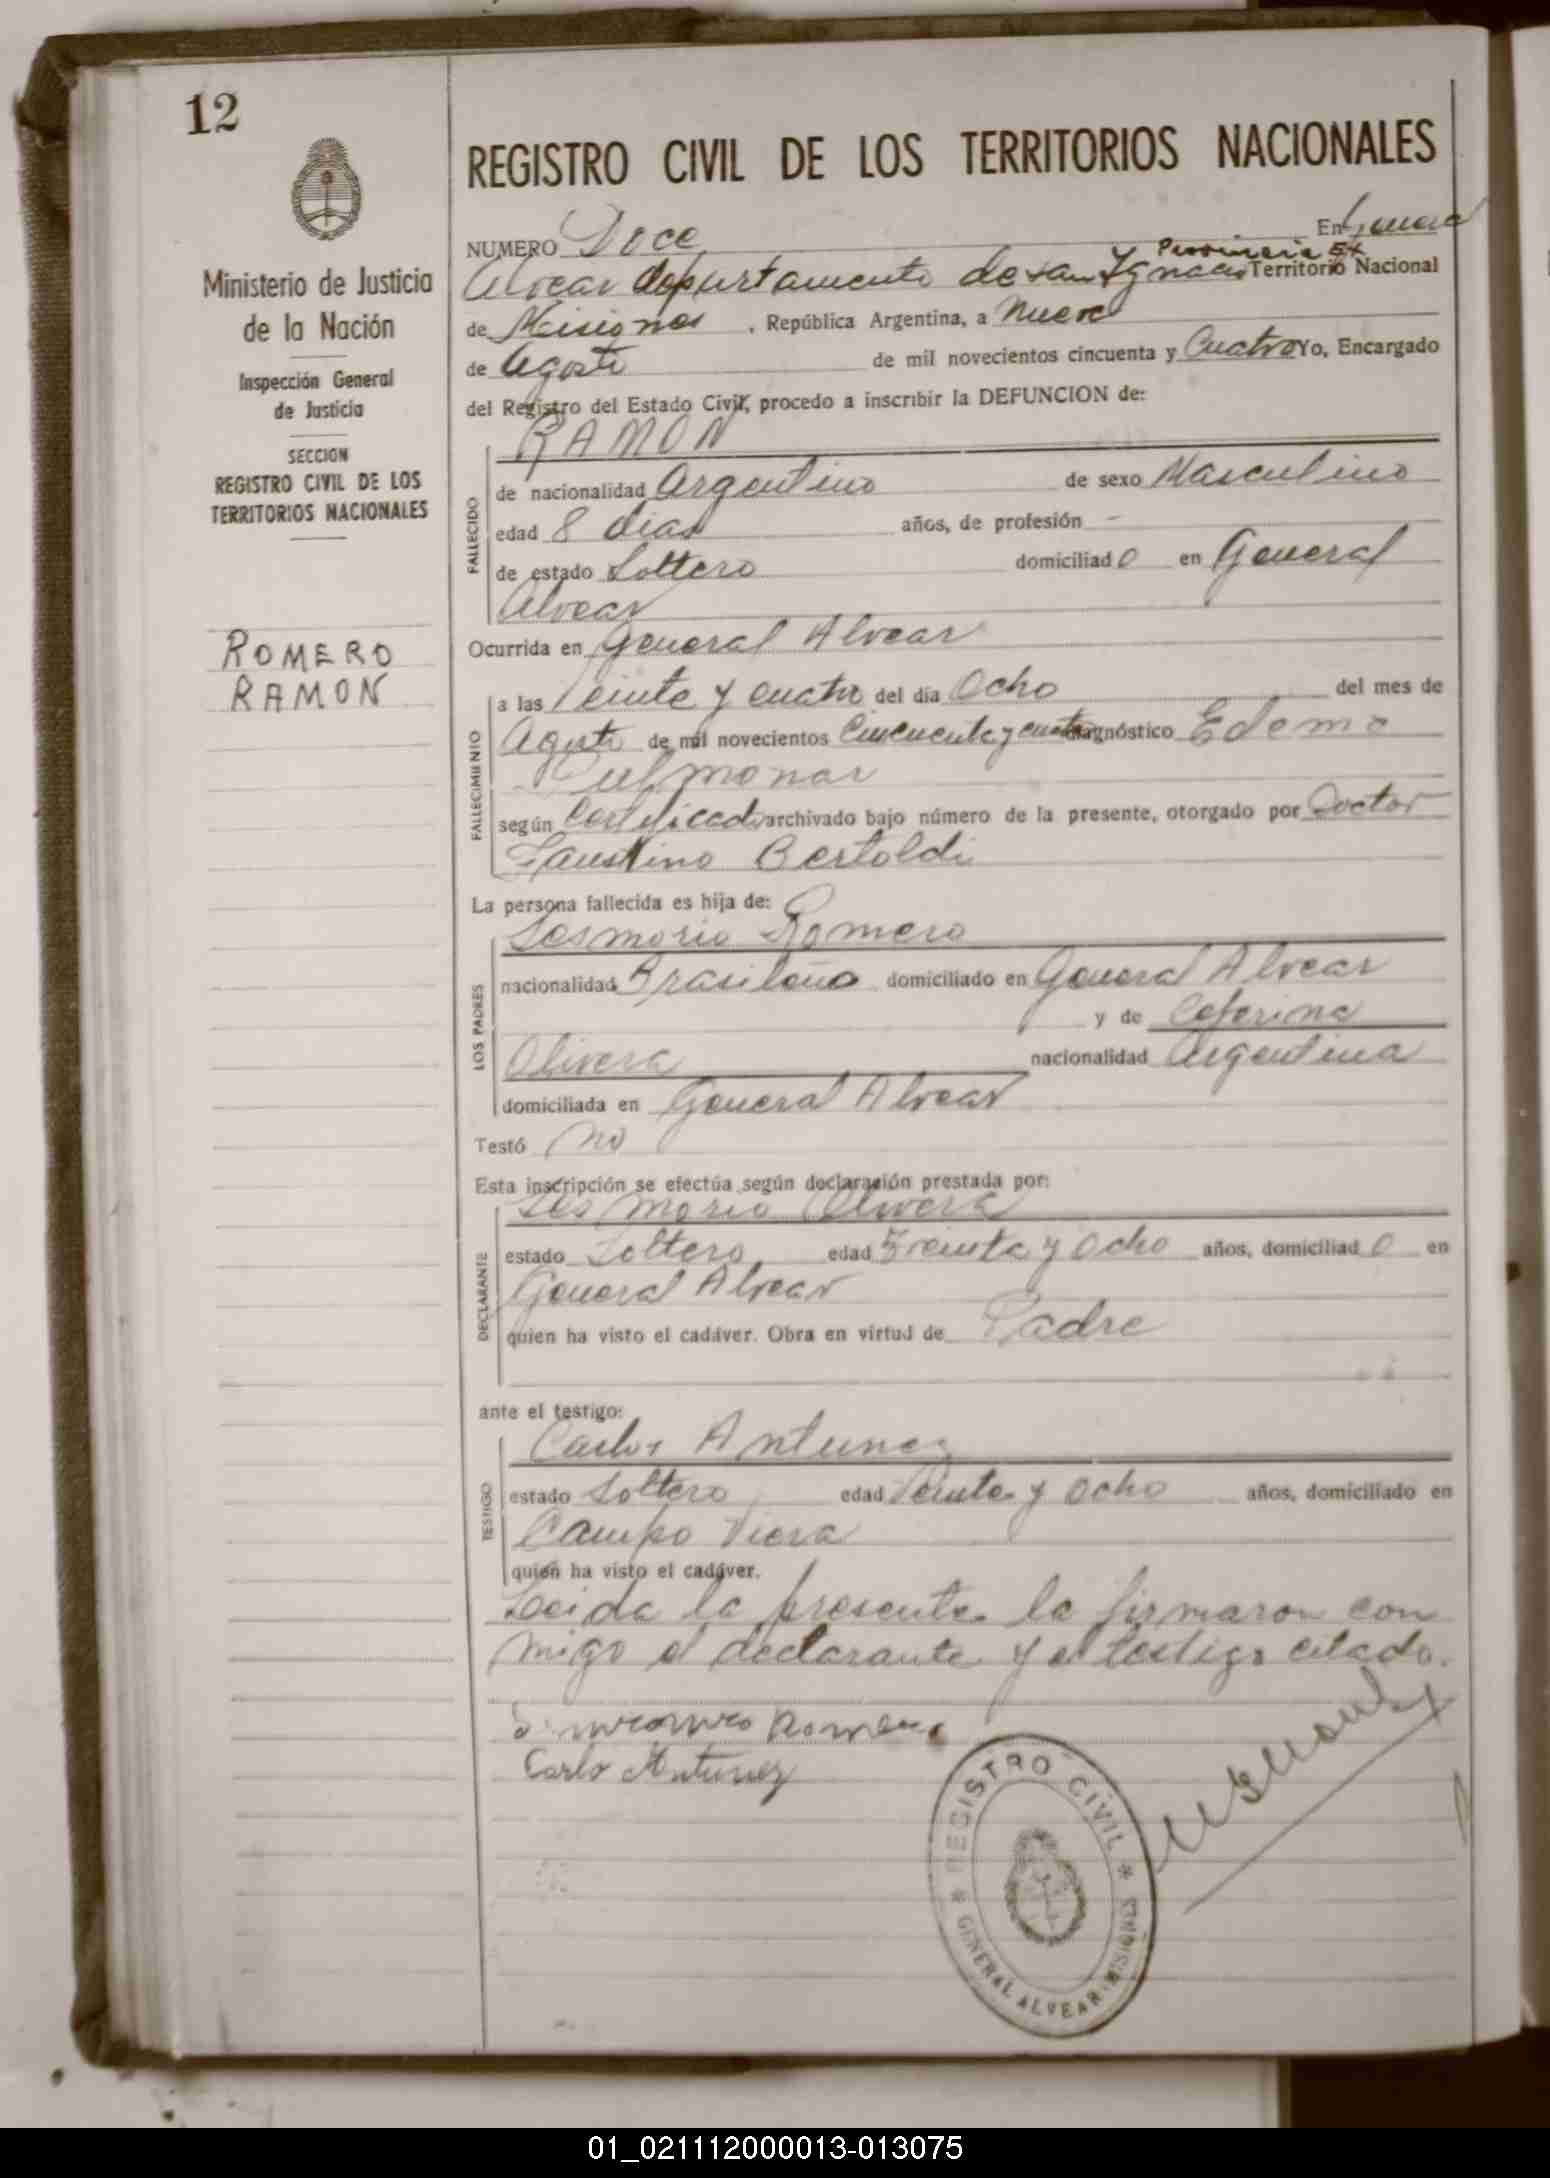 12
REGISTRO CIVIL DE LOS TERRITORIOS NACIONALES
Ministerio de Justicia
de la Nación
Inspección General
de Justicia
SECCION
REGISTRO CIVIL DE LOS
TERRITORIOS NACIONALES
ROMERO
RAMON
NUMERO Doce En General
Alvear departamento de San Ygnacio Provincia Ex Territorio Nacional
de Misiones, República Argentina, a nueve
de Agosto de mil novecientos cincuenta y Cuatro Yo, Encargado
del Registro del Estado Civil, procedo a inscribir la DEFUNCION de:
RAMON
FALLECIDO
de nacionalidad Argentino de sexo Masculino
edad 8 dias años, de profesión -
de estado Soltero domiciliado en General
Alvear
Ocurrida en General Alvear
FALLECIMIENTO
a las Veinte y cuatro del día Ocho del mes de
Agosto de mil novecientos Cincuenta y cuatro diagnóstico Edema
Pulmonar
según Certificado archivado bajo número de la presente, otorgado por Doctor
Faustino Bertoldi
La persona fallecida es hija de:
LOS PADRES
Sesmorio Romero
nacionalidad Brasileño domiciliado en General Alvear
y de Ceferina
Olivera nacionalidad Argentina
domiciliada en General Alvear
Testó no
Esta inscripción se efectúa según declaración prestada por:
DECLARANTE
Ses morio Olivera
estado Soltero edad Treinta y Ocho años, domiciliado en
General Alvear
quien ha visto el cadáver. Obra en virtud de Padre
ante el testigo:
TESTIGO
Carlos Antunez
estado Soltero edad Veinte y Ocho años, domiciliado en
Campo Viera
quien ha visto el cadáver.
Leida la presente la firmaron con
migo el declarante y el testigo citado.
Romero
Carlo Antunez
REGISTRO CIVIL
GENERAL ALVEAR (MISIONES)
01_021112000013-013075